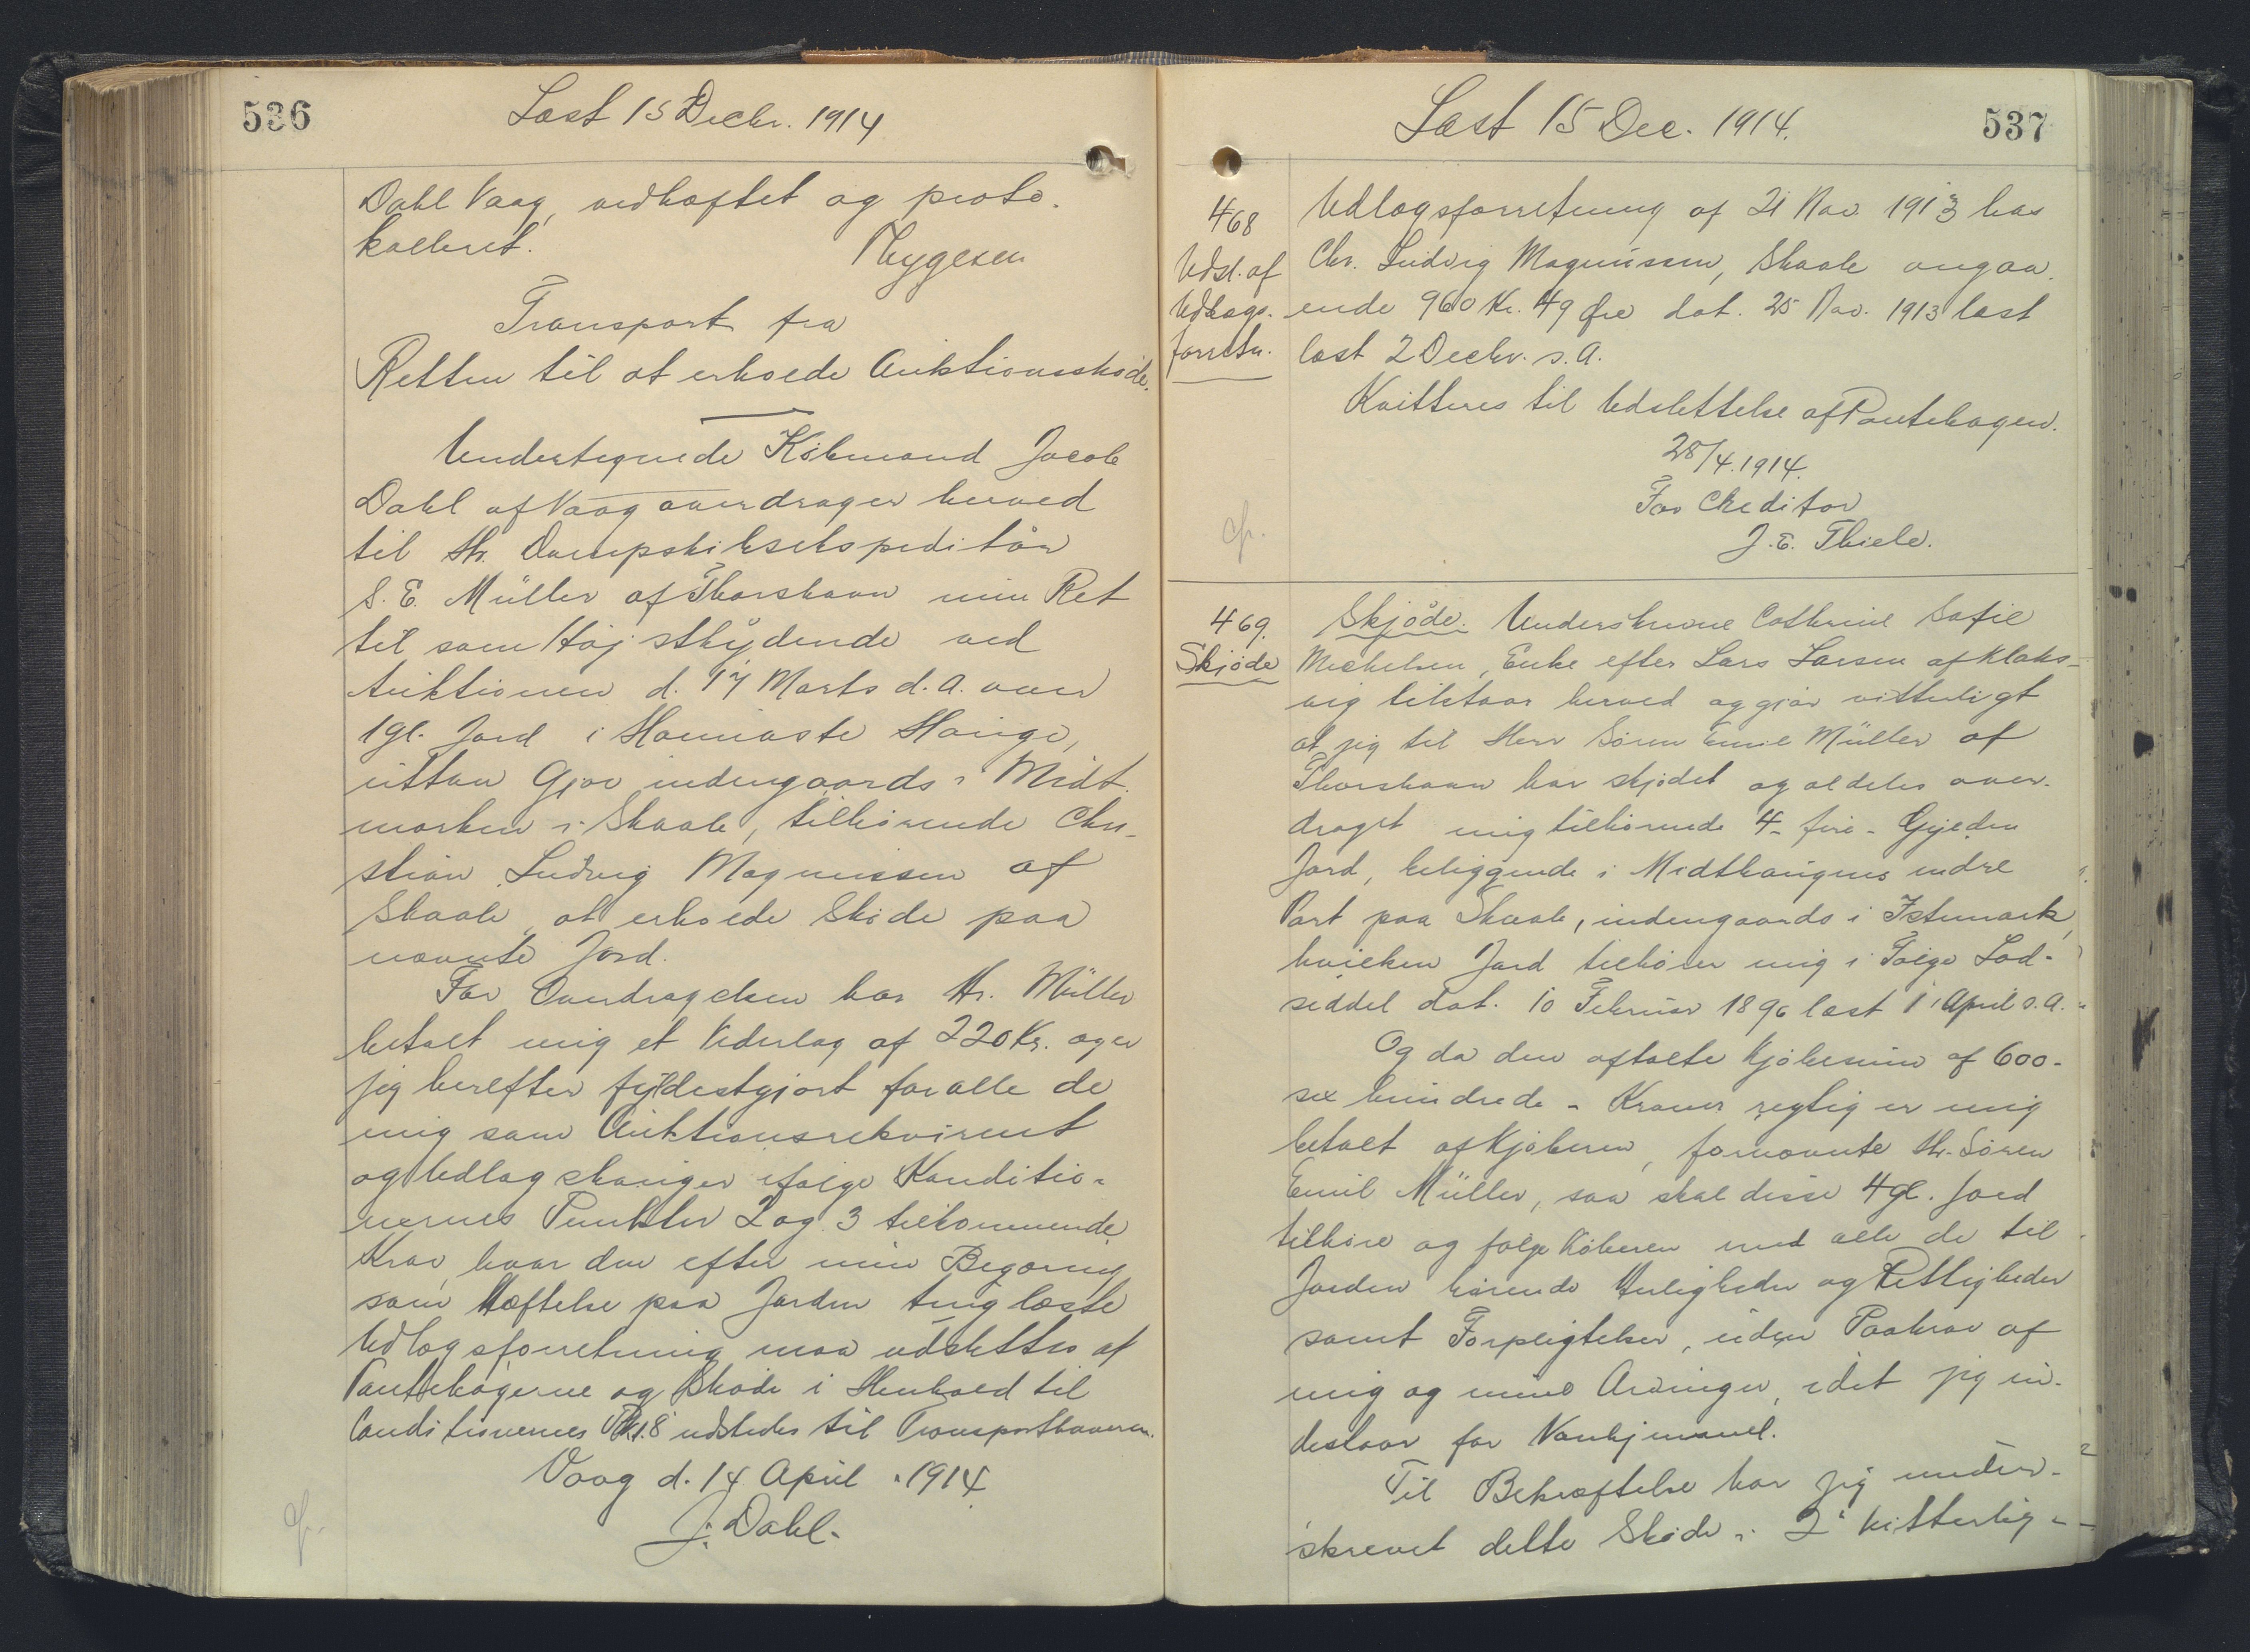 536
Læst 15 Decbr. 1914
Dahl Vaag, vedhæftet og proto-
kolleret.
Thygesen
Transport fra
Retten til at erholde Auktionsskøde.
Undertegnede Købmand Jacob
Dahl af Vaag overdrager herved
til Hr. Dampskibsekspeditør
S. E. Müller af Thorshavn min Ret
til som Højstbydende ved
Auktionen d. 17 Marts d. A. over
1 gl. Jord i Heimaste Hauge,
uttan Gjov indengaards i Midt-
marken i Skaale, tilhørende Chri-
stian Ludvig Magnussen af
Skaale, at erholde Skøde paa
nævnte Jord.
For Overdragelsen har Hr. Müller
betalt mig et Vederlag af 220 Kr. og er
jeg herefter fyldestgjort for alle de
mig som Auktionsrekvirent
og Udlægshaver ifølge Konditio-
nernes Punkter 2 og 3 tilkommende
Krav, hvor den efter min Begæring
som Hæftelse paa Jorden tinglæste
Udlægsforretning maa udslettes af
Pantebøgerne og Skøde i Henhold til
Conditionernes Pkt. 8 udstedes til Transporthaveren.
Vaag d. 14 April 1914
J. Dahl.
cfr.
Læst 15 Dec. 1914.
537
468
Udsl. af
Udlægs-
forretn.
Udlægsforretning af 21 Nov. 1913 hos
Chr. Ludvig Magnussen, Skaale angaa-
ende 960 Kr. 49 Øre dat. 25 Nov. 1913 læst
læst 2 Decbr. s. A.
Kvitteres til Udslettelse af Pantebogen.
28/4. 1914.
For Creditor
J. E. Thiele.
cfr.
469.
Skjøde
Skjøde. Underskrevne Cathrine Sofie
Michelsen, Enke efter Lars Larsen af Klaks-
vig tilstaar herved og gjør vitterligt
at jeg til Herr Sören Emil Müller af
Thorshavn har skjødet og aldeles over-
draget mig tilhørende 4 - fire - Gylden
Jord, beliggende i Midthaugens indre
Part paa Skaale, indengaards i Istemark,
hvilken Jord tilhører mig i Følge Lod-
seddel dat. 10 Februar 1896 læst 1 April s. A.
Og da den aftalte Kjøbesum af 600 -
sex hundrede - Kroner rigtig er mig
betalt af Kjøberen, fornævnte Hr. Sören
Emil Müller, saa skal disse 4 gl. Jord
tilhøre og følge Køberen med alle de til
Jorden hørende Herligheder og Rettigheder
samt Forpligtelser, uden Paakrav af
mig og mine Arvinger, idet jeg in-
destaar for Vanhjemmel.
Til Bekræftelse har jeg under-
skrevet dette Skøde i 2 Vitterlig-